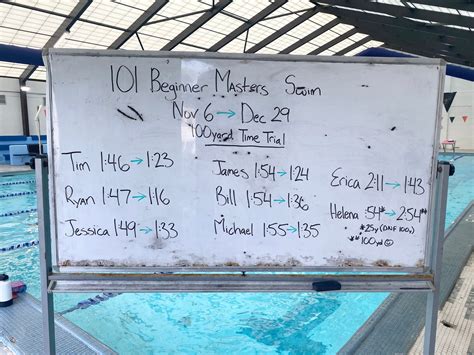 101 Beginner Masters Swim
Nov 6 → Dec 29
100yard Time Trial
Tim 1:46 → 1:23
Ryan 1:47 → 1:16
Jessica 1:49 → 1:33
James 1:54 → 1:24
Bill 1:54 → 1:36
Michael 1:55 → 1:35
Erica 2:11 → 1:43
Helena :54* → 2:54**
*25y (DNF 100y)
**100yd ☺